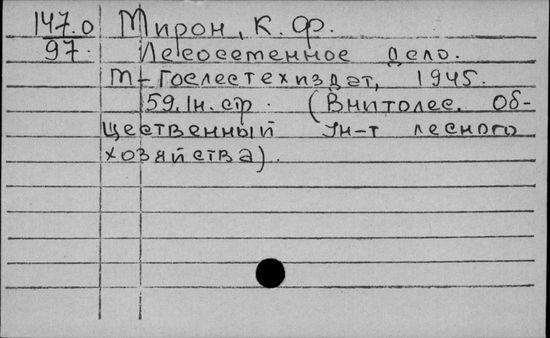 147.0 Мирон, К. Ф.
97. Лесосеменное дело.
М-Гослестехиздат, 1945.
59.1н. стр. (Внитолес. Об-
щественный Ин-т лесного
хозяйства).